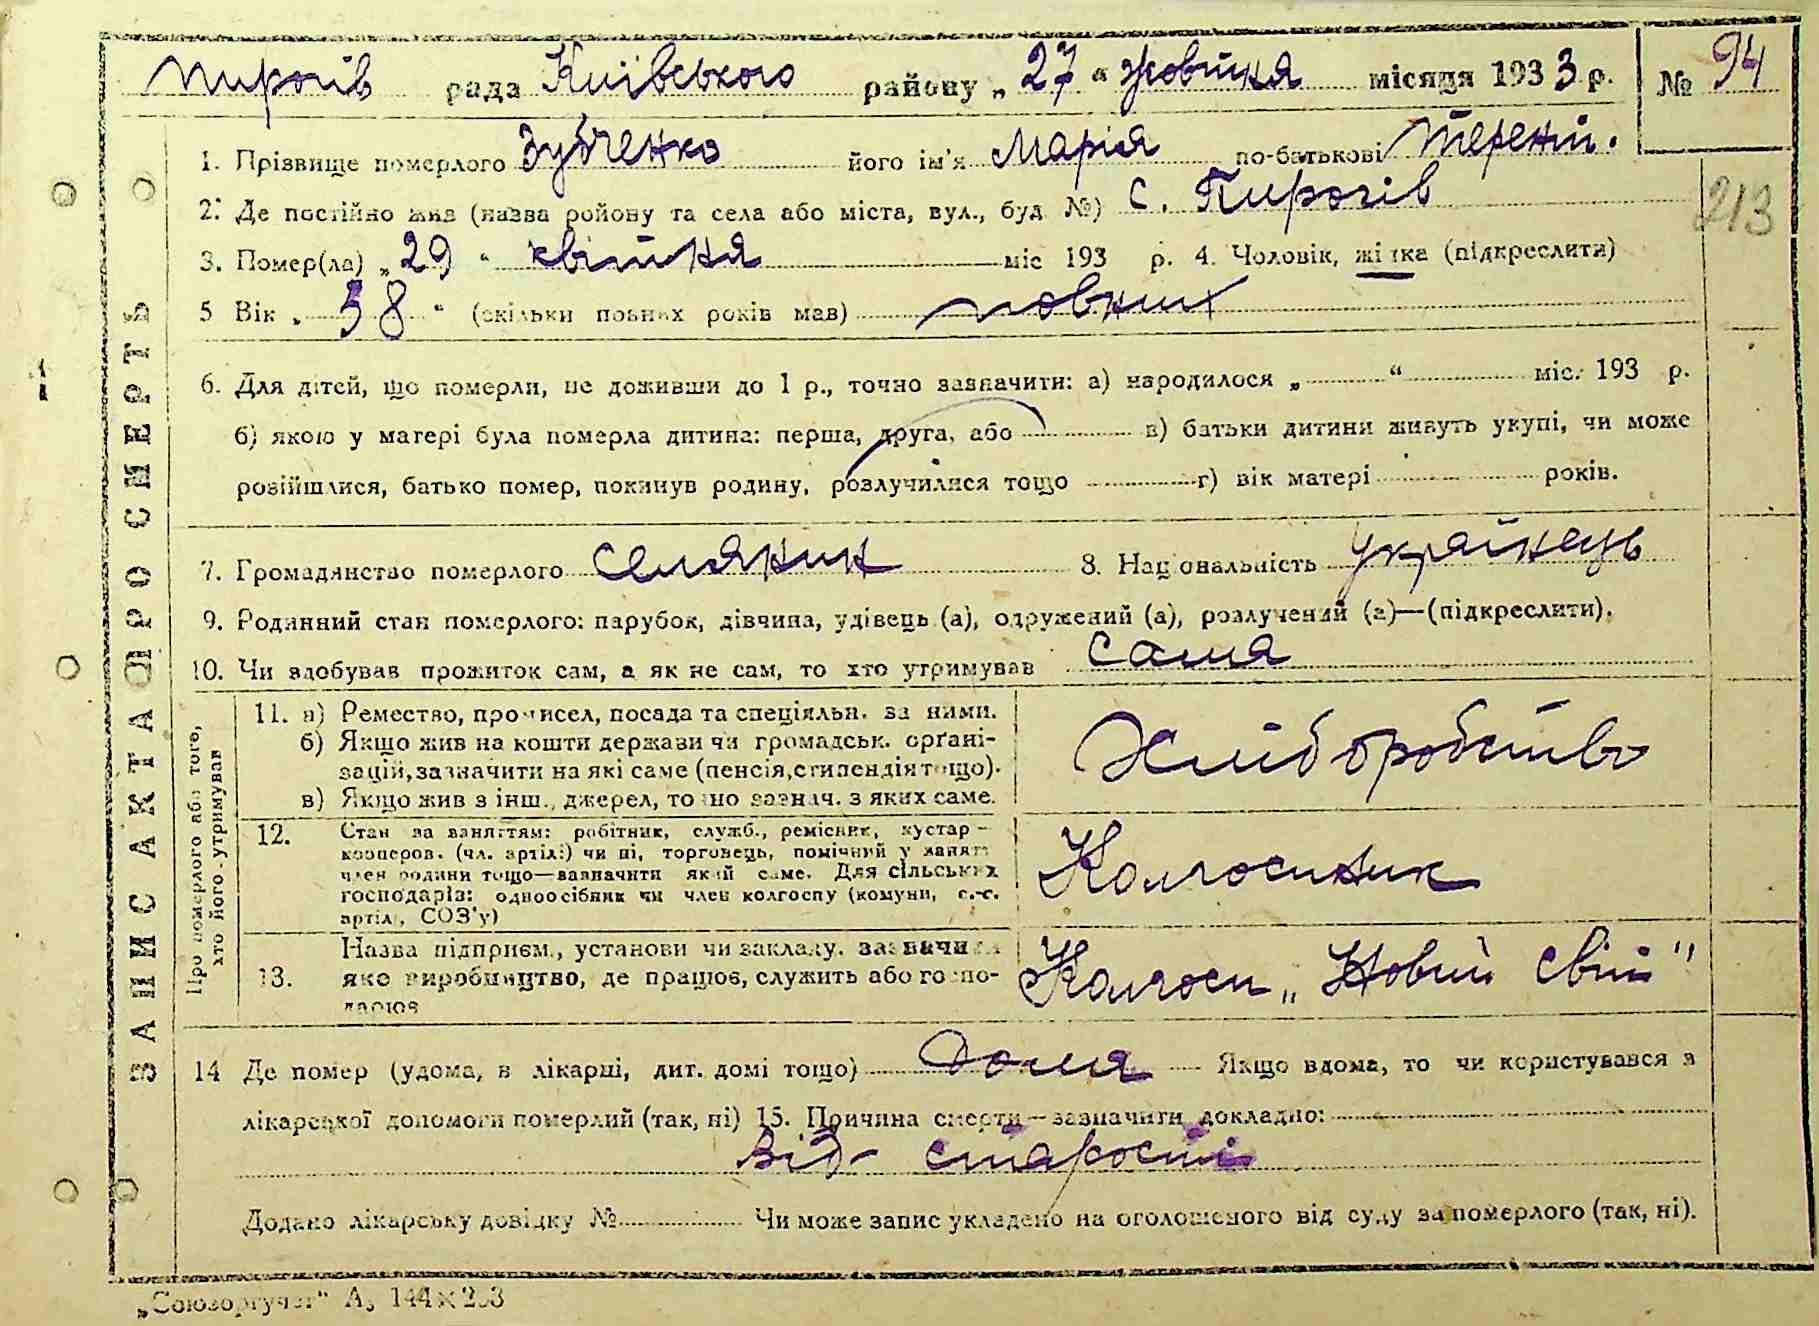 Пирогів рада Київського району „27“ жовтня місяця 1933 р. № 94
1. Прізвище померлого Зубченко його ім'я Марія по-батькові Терент.
213
2. Де постійно жив (назва ройону та села або міста, вул., буд №) с. Пирогів
3. Помер(ла) „29“ квітня міс 193 р. 4. Чоловік, жінка (підкреслити)
5 Вік „58“ (скільки повних років мав) повних
6. Для дітей, що померли, не доживши до 1 р., точно зазначити: а) народилося „ “ міс. 193 р.
б) якою у матері була померла дитина: перша, друга, або в) батьки дитини живуть укупі, чи може
розійшлися, батько помер, покинув родину, розлучилися тощо г) вік матері років.
7. Громадянство померлого селянин 8. Національність українець
9. Родинний стан померлого: парубок, дівчина, удівець (а), одружений (а), розлучений (а)—(підкреслити).
10. Чи здобував прожиток сам, а як не сам, то хто утримував сама
ЗАПИС АКТА ПРО СМЕРТЬ
Про померлого або того,
хто його утримував
11. а) Ремество, промисел, посада та спеціяльн. за ними.
б) Якщо жив на кошти держави чи громадськ. орґані-
зацій, зазначити на які саме (пенсія, стипендія тощо).
в) Якщо жив з інш., джерел, точно зазнач. з яких саме.
Хліборобство
12. Стан за заняттям: робітник, служб., ремісник, кустар—
кооперов. (чл. артілі) чи ні, торговець, помічний у занятт
член родини тощо—зазначити який саме. Для сільських
господарів: одноосібник чи член колгоспу (комуни, с.-г.
артілі, СОЗ'у)
Колгоспник
13. Назва підприєм., установи чи закладу. зазначити
яке виробництво, де працює, служить або госпо-
дарює
Колгосп „Новий світ"
14 Де помер (удома, в лікарні, дит. домі тощо) дома Якщо вдома, то чи користувався з
лікарської допомоги померлий (так, ні) 15. Причина смерти—зазначити докладно:
від старості
Додано лікарську довідку № Чи може запис укладено на оголошеного від суду за померлого (так, ні).
„Союзоргучет"